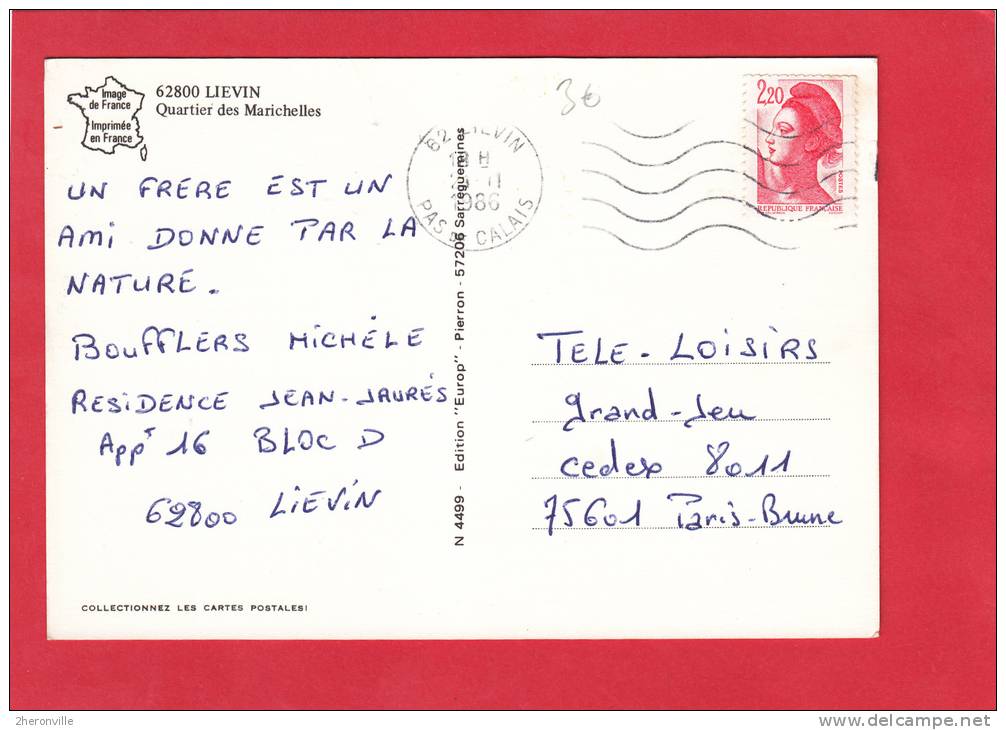 Image
de France
Imprimée
en France
62800 LIEVIN
Quartier des Marichelles
3€
62 LIEVIN
H
11
1986
PAS DE CALAIS
2,20
POSTES
REPUBLIQUE FRANÇAISE
UN FRERE EST UN
AMI DONNE PAR LA
NATURE.
BOUFFLERS MICHÈLE
RESIDENCE JEAN-JAURÉS
Appt 16 BLOC D
62800 LIEVIN
N 4499 - Edition "Europ" - Pierron - 57206 Sarreguemines
TELE-LOISIRS
Grand-Jeu
cedex 8011
75601 Paris-Brune
COLLECTIONNEZ LES CARTES POSTALES!
2heronville
delcampe.net